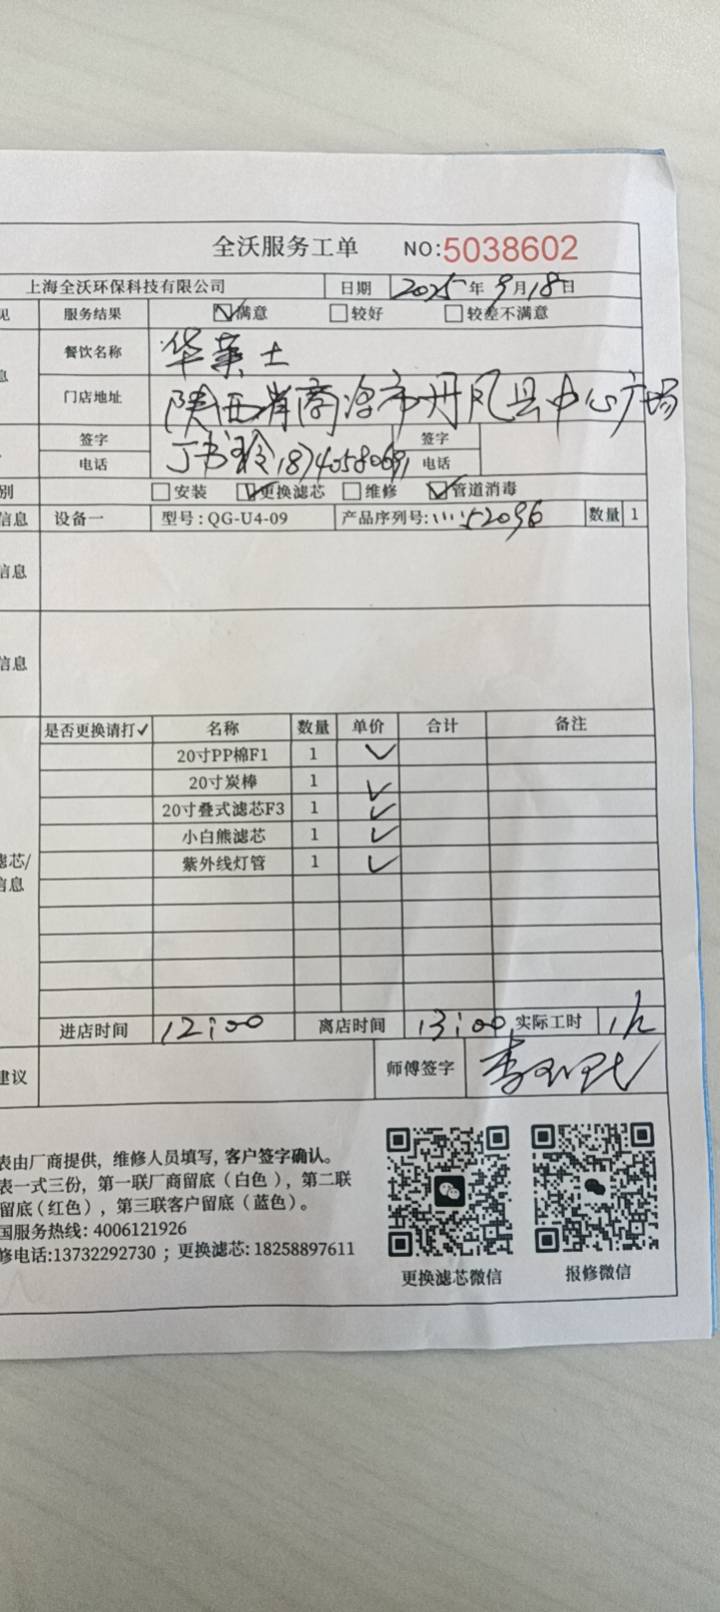 全沃服务工单 NO:5038602
上海全沃环保科技有限公司 日期 2025年9月18日
见 服务结果 满意 较好 较差不满意
息 餐饮名称 华莱士
门店地址 陕西省商洛市丹凤县中心广场
签字 签字
电话 18740580691 电话
别 安装 更换滤芯 维修 管道消毒
信息 设备一 型号:QG-U4-09 产品序列号: 52096 数量 1
信息
信息
是否更换请打✓ 名称 数量 单价 合计 备注
20寸PP棉F1 1 ✓
20寸炭棒 1 ✓
20寸叠式滤芯F3 1 ✓
小白熊滤芯 1 ✓
滤芯/ 紫外线灯管 1 ✓
信息
进店时间 12:00 离店时间 13:00 实际工时 1h
建议 师傅签字
表由厂商提供，维修人员填写，客户签字确认。
表一式三份，第一联厂商留底（白色），第二联
留底（红色），第三联客户留底（蓝色）。
国服务热线: 4006121926
修电话:13732292730 ；更换滤芯: 18258897611
更换滤芯微信 报修微信